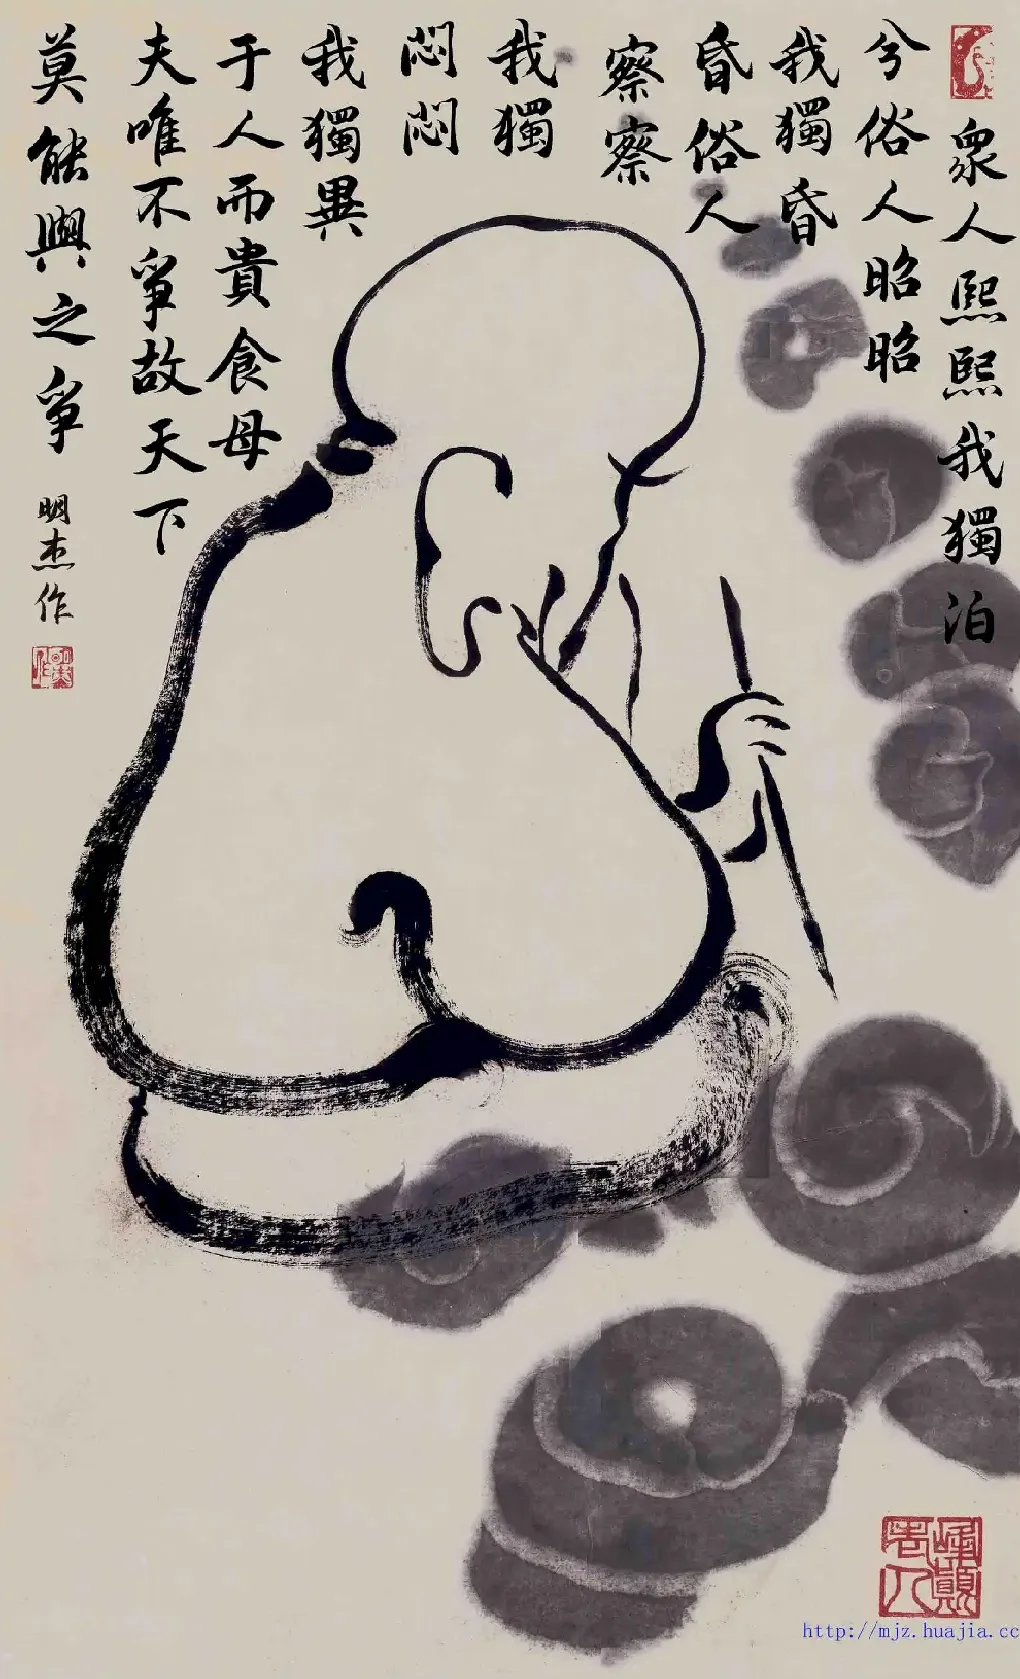 衆人熙熙我獨泊
兮俗人昭昭
我獨昏
昏俗人
察察
我獨
悶悶
我獨異
于人而貴食母
夫唯不爭故天下
莫能與之爭
明杰作
http://mjz.huajia.cc